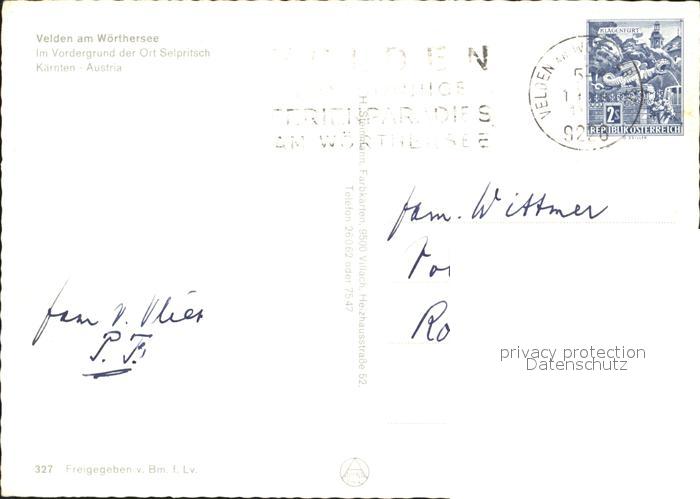 Velden am Wörthersee
Im Vordergrund der Ort Selpritsch
Kärnten - Austria
FERIENPARADIES
AM WÖRTHERSEE
VELDEN AM
9220
KLAGENFURT
2s
REPUBLIK ÖSTERREICH
H. Steinmann, Farbkarten, 9500 Villach, Heizhausstraße 52,
Telefon 26062 oder 7547
fam. Wittmer
Ro
fam v. Vlier
P. F.
privacy protection
Datenschutz
327 Freigegeben v. Bm. f. Lv.